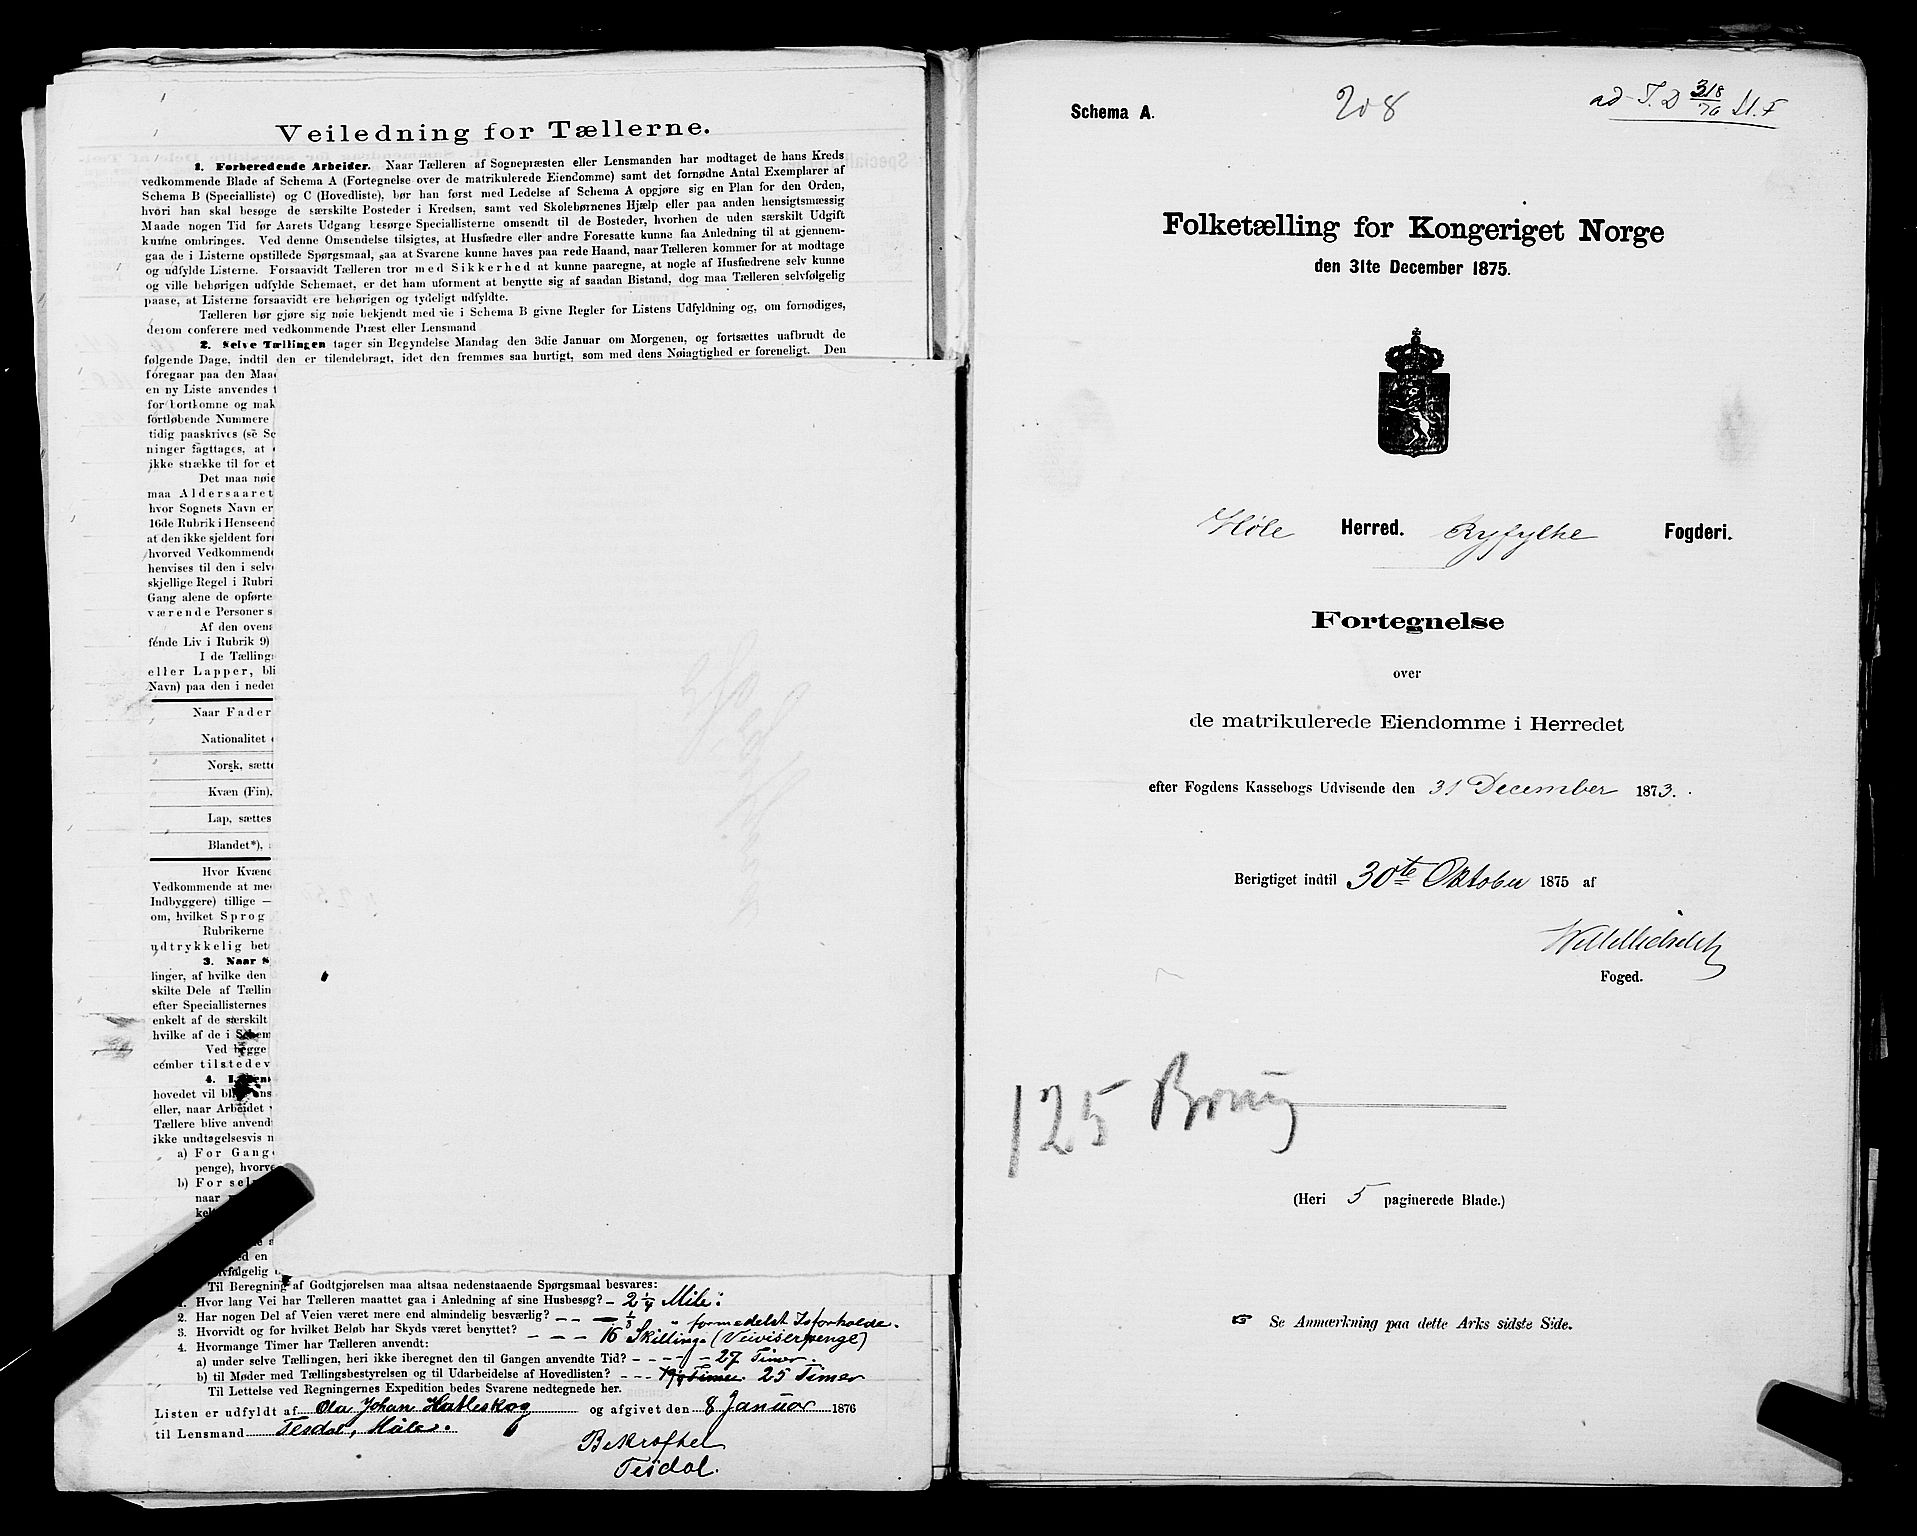 Veiledning for Tællerne.
1. Forberedende Arbeider. Naar Tælleren af Sognepræsten eller Lensmanden har modtaget de hans Kreds
vedkommende Blade af Schema A (Fortegnelse over de matrikulerede Eiendomme) samt det fornødne Antal Exemplarer af
Schema B (Specialliste) og C (Hovedliste), bør han først med Ledelse af Schema A opgjøre sig en Plan for den Orden,
hvori han skal besøge de særskilte Posteder i Kredsen, samt ved Skolebørnenes Hjælp eller paa anden hensigtsmæssig
Maade nogen Tid før Aarets Udgang besørge Speciallisterne omsendt til de Bosteder, hvorhen de uden særskilt Udgift
kunne ombringes. Ved denne Omsendelse tilsigtes, at Husfædre eller andre Foresatte kunne faa Anledning til at gjennem-
gaa de i Listerne opstillede Spørgsmaal, saa at Svarene kunne haves paa rede Haand, naar Tælleren kommer for at modtage
og udfylde Listerne. Forsaavidt Tælleren tror med Sikkerhed at kunne paaregne, at nogle af Husfædrene selv kunne
og ville behørigen udfylde Schemaet, er det ham uforment at benytte sig af saadan Bistand, dog maa Tælleren selvfølgelig
paase, at Listerne forsaavidt ere behørigen og tydeligt udfyldte.
Tælleren bør gjøre sig nøie bekjendt med de i Schema B givne Regler for Listens Udfyldning og, om fornødiges,
derom conferere med vedkommende Præst eller Lensmand
2. Selve Tællingen tager sin Begyndelse Mandag den 3die Januar om Morgenen, og fortsættes uafbrudt de
følgende Dage, indtil den er tilendebragt, idet den fremmes saa hurtigt, som med dens Nøiagtighed er foreneligt. Den
foregaar paa den Maa
en ny Liste anvendes
for bortkomne og mak
fortløbende Nummere
tidig paaskrives (se Sc
ninger iagttages, at
ikke strække til for et
Det maa nøie
maa Aldersaaret
hvor Sognets Navn er
16de Rubrik i Henseend
at den ikke sjeldent for
hvorved Vedkommende
henvises til den i selv
skjellige Regel i Rubri
Gang alene de opførte
værende Personer s
Af den oven
fende Liv i Rubrik 9)
I de Tælling
eller Lapper, bli
Navn) paa den i neder
Naar Fader
Nationalitet
Norsk, sætte
Kvæn (Fin),
Lap, sættes
Blandet*),
Hvor Kvæne
Vedkommende at me
Indbyggere) tillige —
om, hvilket Sprog
Rubrikerne
udtrykkelig bet
3. Naar S
linger, af hvilke den
skilte Dele af Tællin
efter Speciallisternes
enkelt af de særskilt
hvilke af de i Schem
Ved begge
cember tilstedev
4.
hovedet vil bli
eller, naar Arbeidet
Tællere blive anvend
ikke undtagelsesvis n
a) For Gang
penge), hvorve
b) For sel
naar
Til Beregning af Godtgjørelsen maa altsaa nedenstaaende Spørgsmaal besvares:
1. Hvor lang Vei har Tælleren maattet gaa i Anledning af sine Husbesøg? – 2 1/4 Mile:
2. Har nogen Del af Veien været mere end almindelig besværlig? – – – 1/3 " formedelst Isforholde.
3. Hvorvidt og for hvilket Beløb har Skyds været benyttet? – – – 16 Skilling (Veiviserpenge)
4. Hvormange Timer har Tælleren anvendt:
a) under selve Tællingen, heri ikke iberegnet den til Gangen anvendte Tid? – – – – 27 Timer.
b) til Møder med Tællingsbestyrelsen og til Udarbeidelse af Hovedlisten? – – – 25 Timer
Til Lettelse ved Regningernes Expedition bedes Svarene nedtegnede her.
Listen er udfyldt af Ola Johan Hatleskog og afgivet den 8 Januar 1876
til Lensmand Tesdal, Høle.
Bekræftes
Tesdal.
Schema A.
208
ad T. D 318/76 M. F
Folketælling for Kongeriget Norge
den 31te December 1875.
Høle Herred. Ryfylke Fogderi.
Fortegnelse
over
de matrikulerede Eiendomme i Herredet
efter Fogdens Kassebogs Udvisende den 31 December 1873.
Berigtiget indtil 30te Oktober 1875 af
Foged.
125 Brug
(Heri 5 paginerede Blade.)
☞ Se Anmærkning paa dette Arks sidste Side.